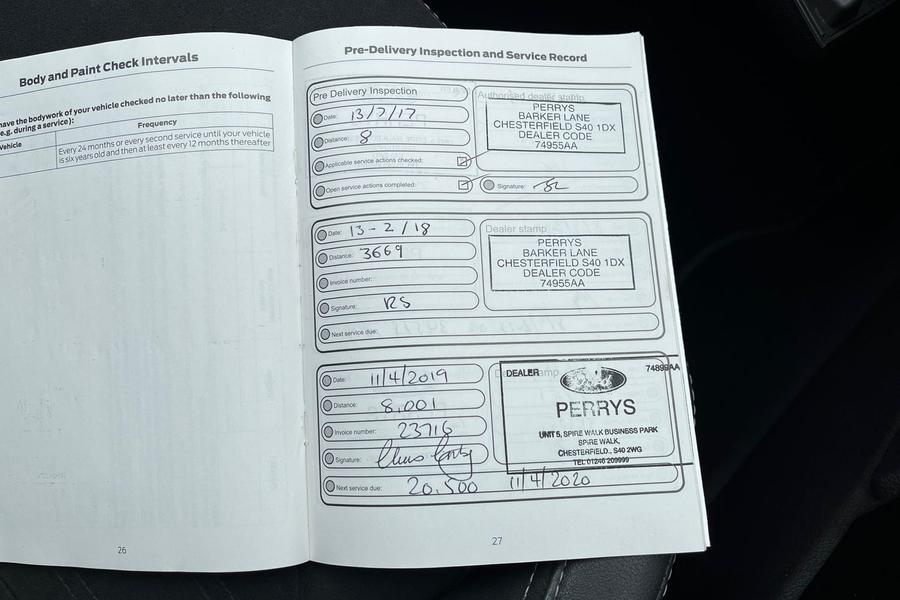 Body and Paint Check Intervals
have the bodywork of your vehicle checked no later than the following
(e.g. during a service):
Vehicle
Frequency
Every 24 months or every second service until your vehicle
is six years old and then at least every 12 months thereafter
26
Pre-Delivery Inspection and Service Record
Pre Delivery Inspection
Date: 13/7/17
Distance: 8
Applicable service actions checked:
Open service actions completed:
Authorised dealer stamp
PERRYS
BARKER LANE
CHESTERFIELD S40 1DX
DEALER CODE
74955AA
Signature:
Date: 13-2/18
Distance: 3669
Invoice number:
Signature: RS
Next service due:
Dealer stamp
PERRYS
BARKER LANE
CHESTERFIELD S40 1DX
DEALER CODE
74955AA
Date: 11/4/2019
Distance: 8,001
Invoice number: 23716
Signature:
Next service due: 20,500 11/4/2020
DEALER 74899AA
PERRYS
UNIT 5, SPIRE WALK BUSINESS PARK
SPIRE WALK,
CHESTERFIELD., S40 2WG
TEL 01246 209999
27